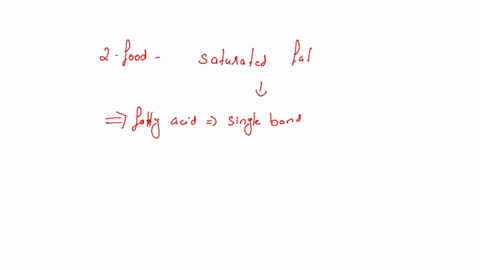 2. food - saturated fat
↓
⇒ fatty acid ⇒ single bond